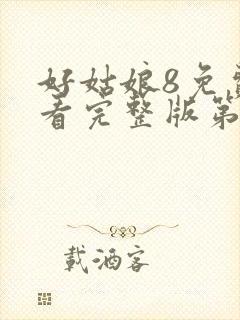 好姑娘8免费
看完整版第
载酒客